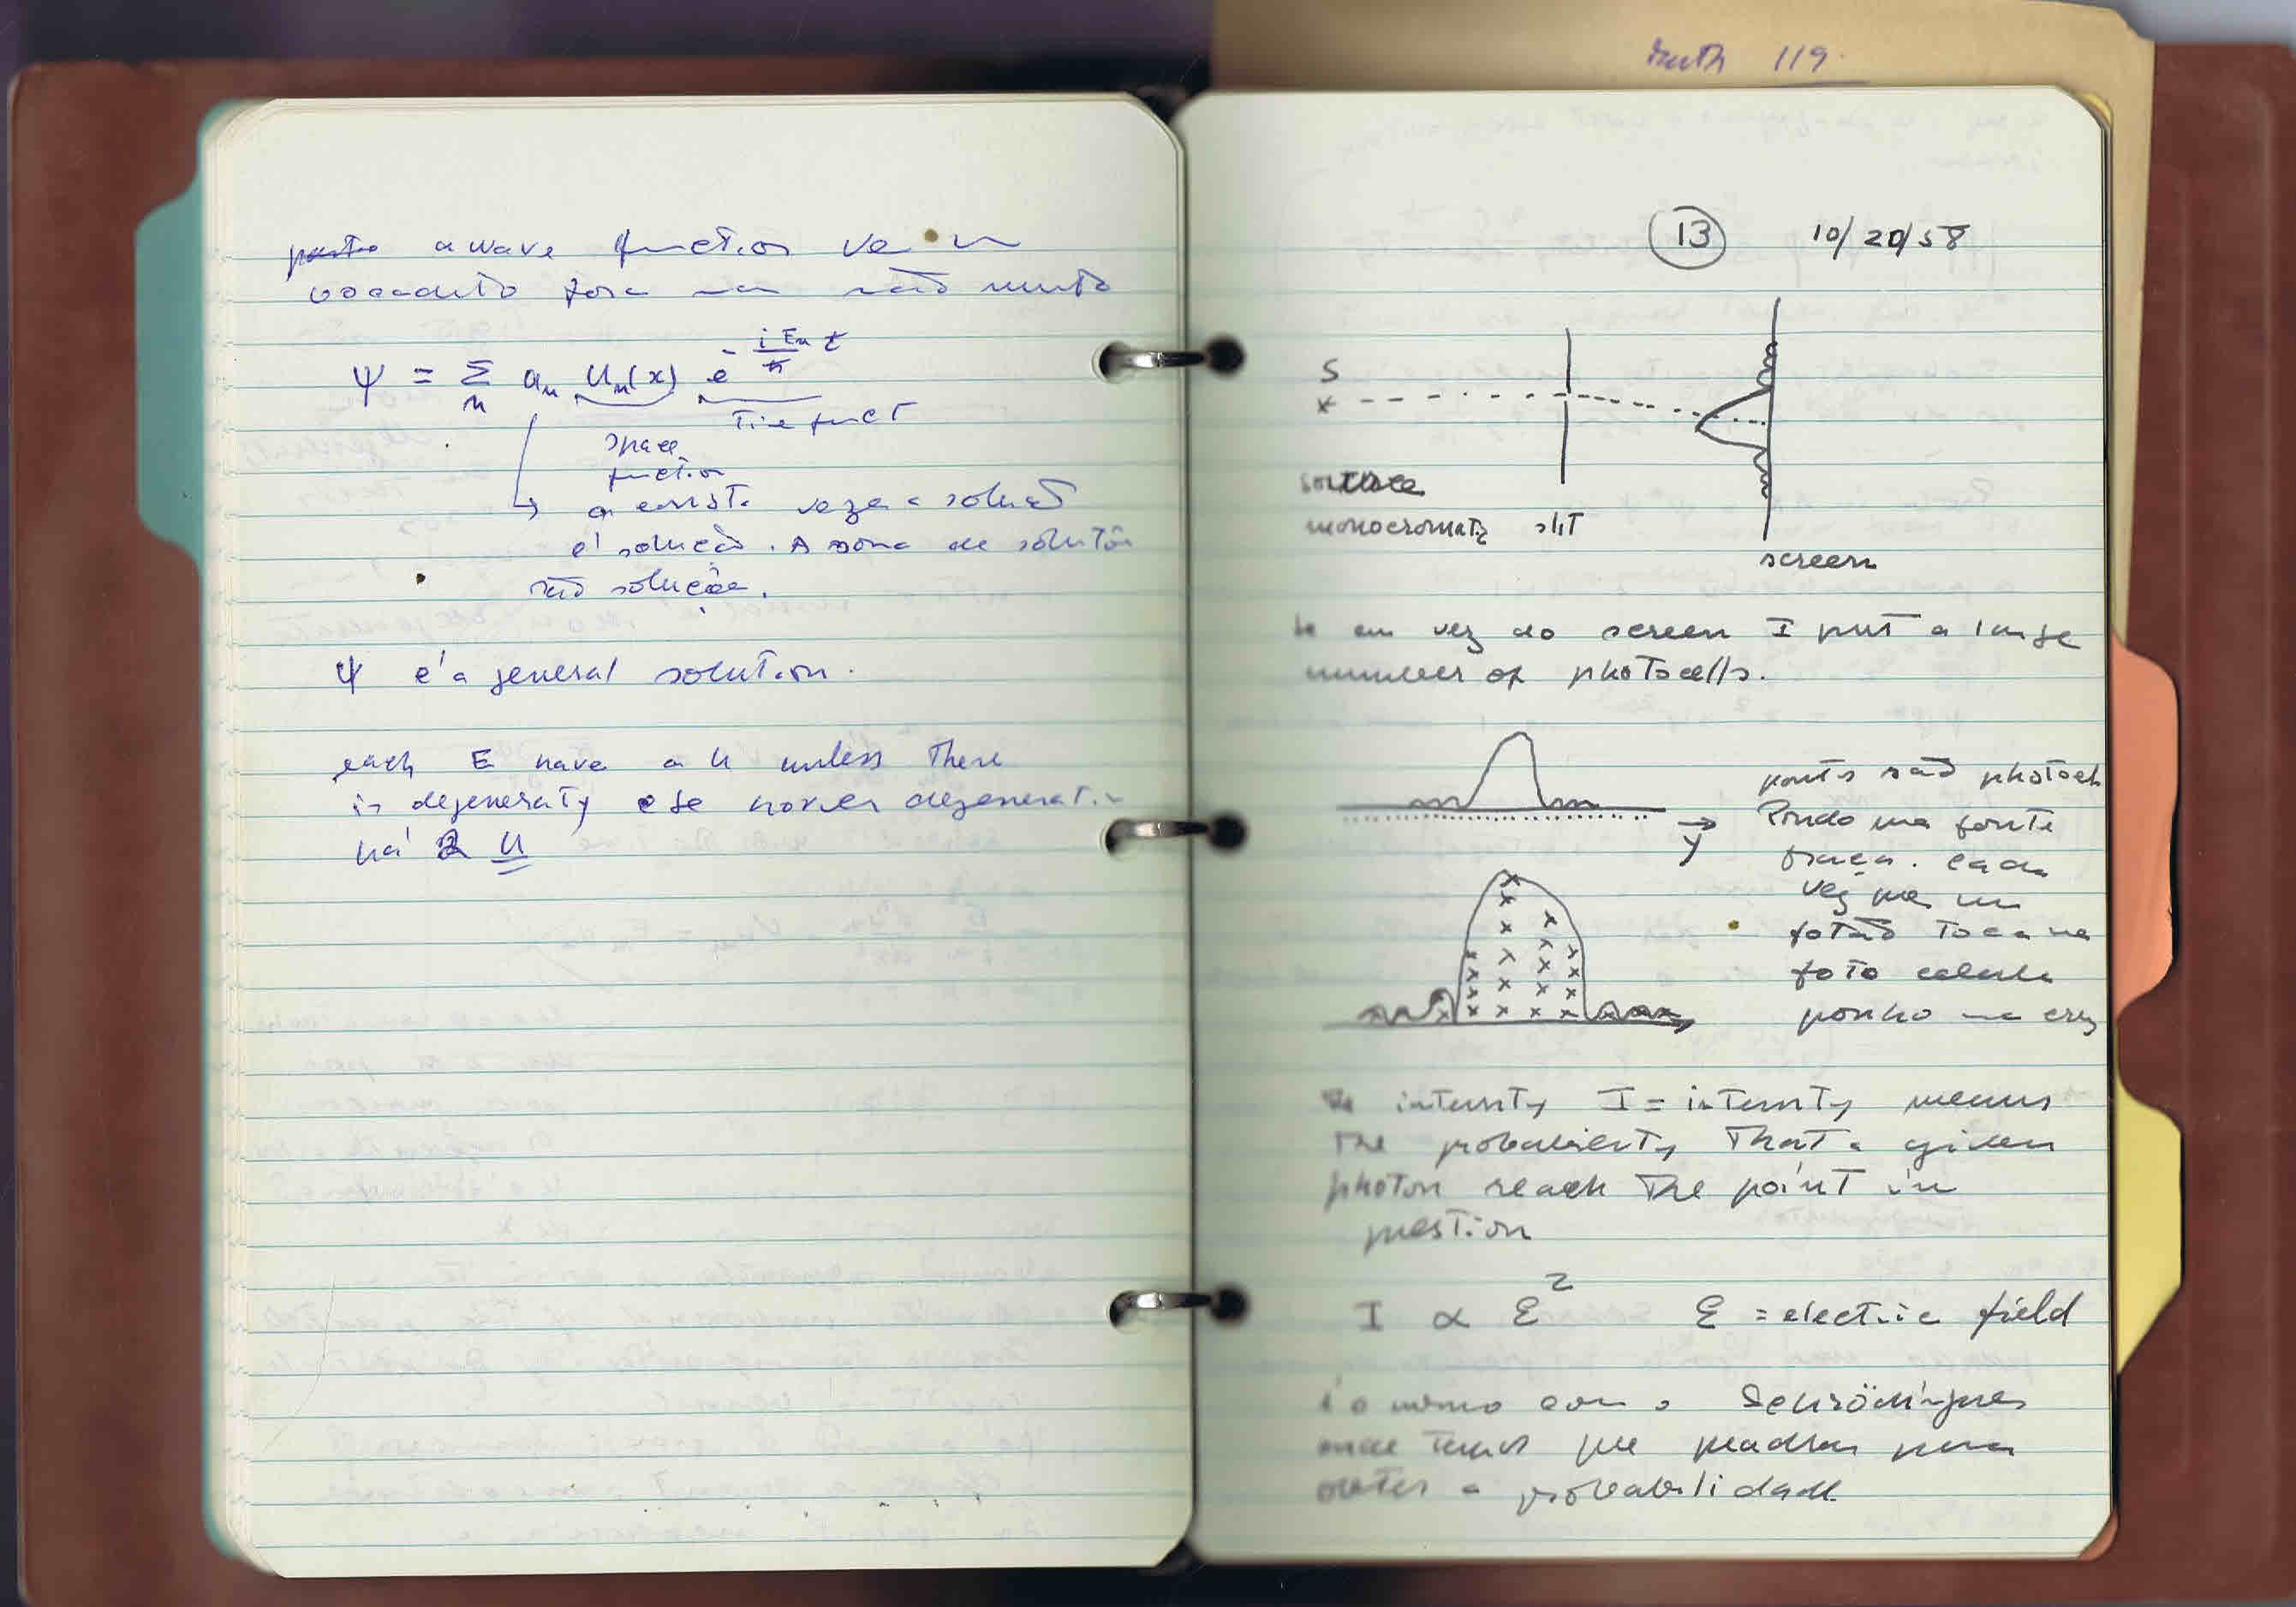 a wave function
fora não muito
ψ = Σ aₙ Uₙ(x) e^(-iEₙt/ħ)
n
Time funct
space
function
a const. veze a soluç
é solução. A soma de
são soluções.
ψ é a general solution.
each E have a U unless there
is degeneraty e se houver degenerati
há 2 U
Math 119.
13 10/20/58
S
x
source
monocromatic slit
screen
Se em vez do screen I put a large
number of photocells.
ponts são photocel
Pondo uma fonte
y
fraca. cada
vez que um
fotão toca na
foto celula
ponho uma cruz
The intensity I = intensity means
the probability that a given
photon reach the point in
question
I ∝ ℰ² ℰ = electric field
é o mesmo com o Schrödinguer
onde temos que quadrar para
obter a probabilidade